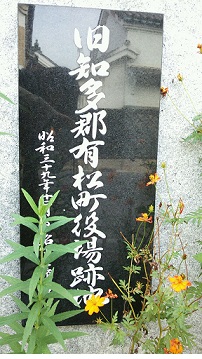 旧知多郡有松町役場跡地
昭和三十九年